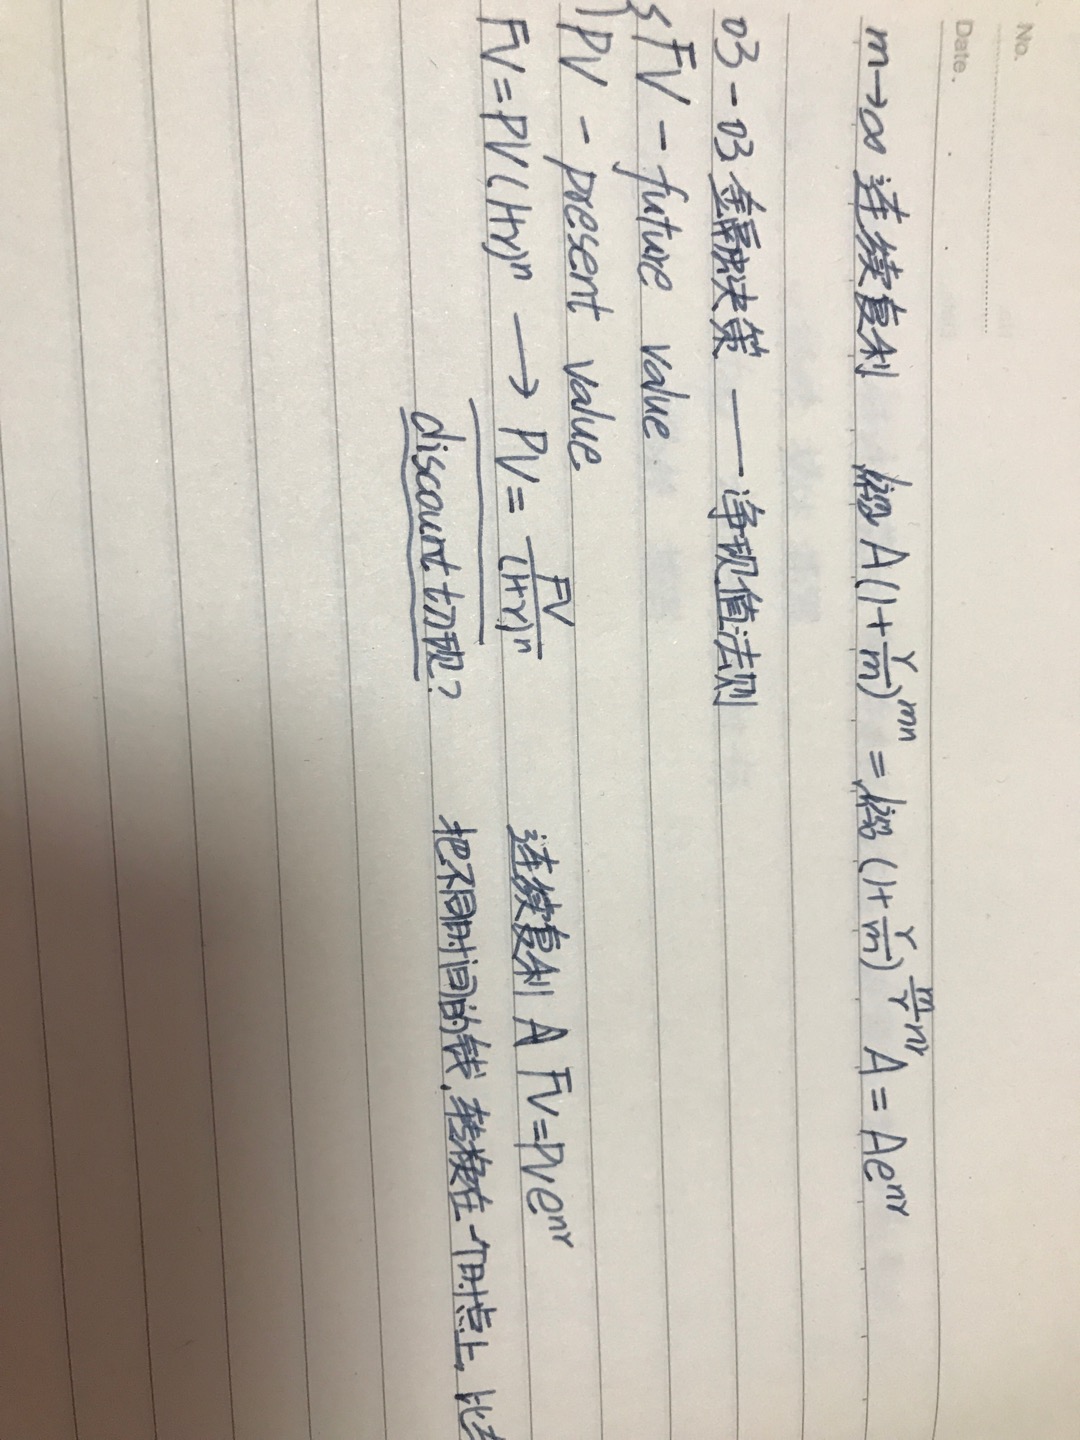 No.
Date.
m→∞ 连续复利 lim A(1+r/m)^mn = lim (1+r/m)^(m/r nr) A = Ae^nr
03-03 金融决策 —— 净现值法则
{ FV - future value
PV - present value
FV=PV(1+r)^n → PV= FV/(1+r)^n 连续复利 A FV=PVe^nr
discount 切现? 把不同时间的钱,转换在一个时点上,比